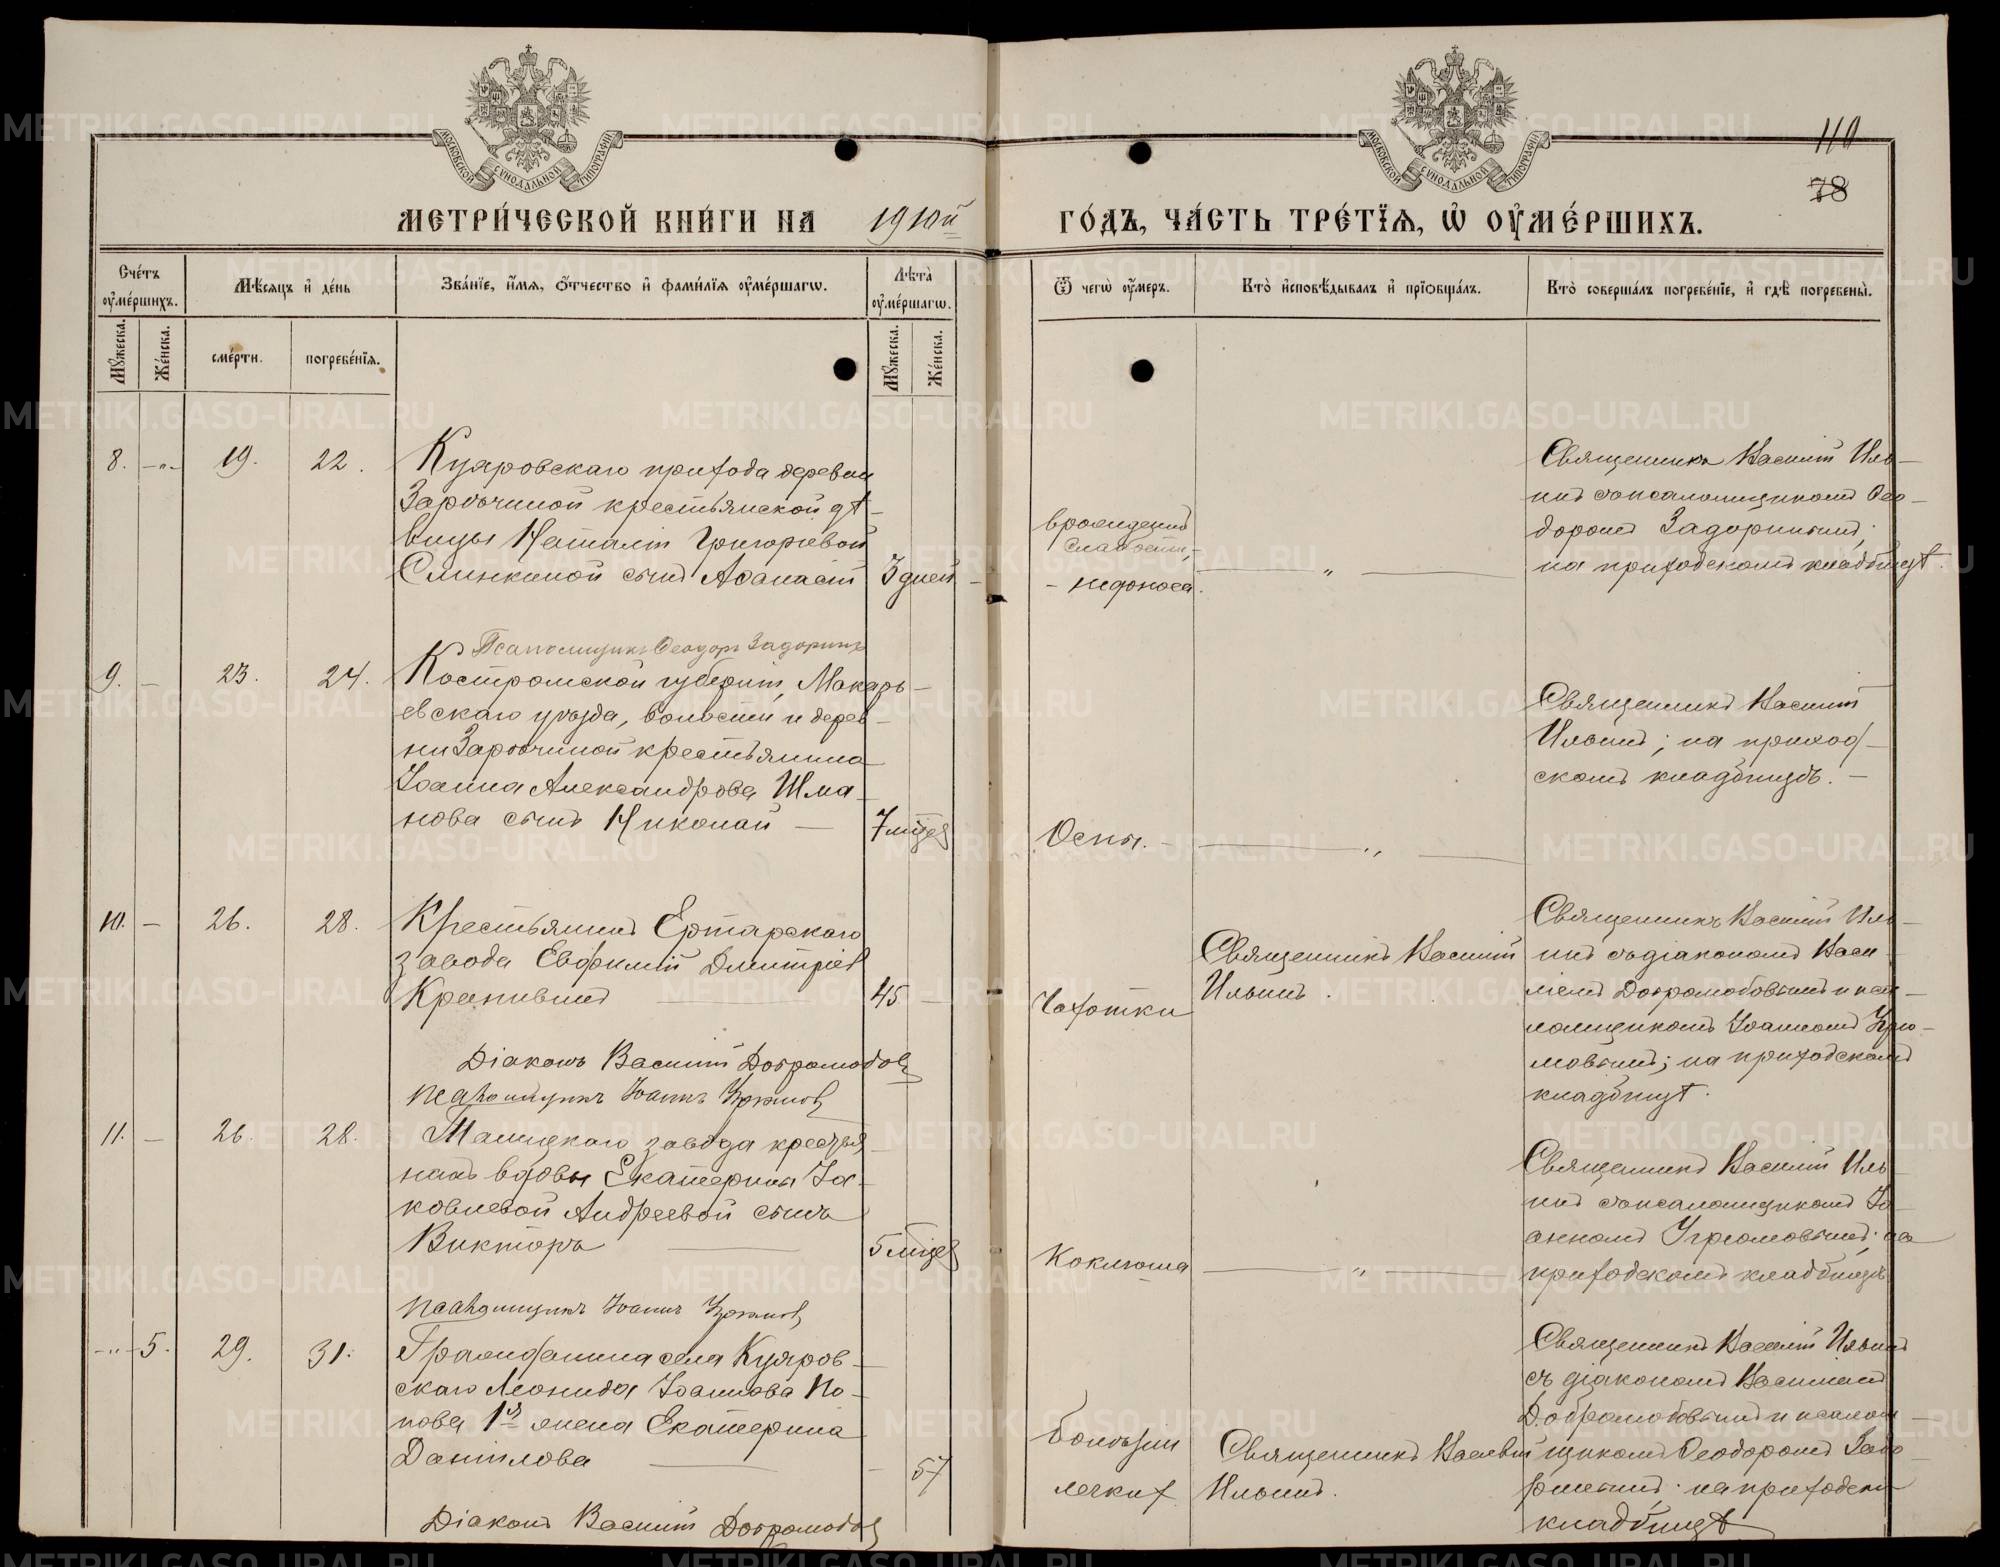 МОСКОВСКОЙ СѴНОДАЛЬНОЙ ТИПОГРАФІИ
МОСКОВСКОЙ СѴНОДАЛЬНОЙ ТИПОГРАФІИ
110
78
МЕТРИ́ЧЕСКОЙ КНИ́ГИ НА 1910й ГО́ДЪ, ЧА́СТЬ ТРЕ́ТІѦ, Ѡ҆ ОУ҆МЕ́РШИХЪ.
Сче́тъ оу҆ме́ршихъ.
Мѣсѧцъ и҆ де́нь
Зва́нїе, и҆́мѧ, ѻ҆́тчество и҆ фами́лїѧ оу҆ме́ршагѡ.
Лѣта̀ оу҆ме́ршагѡ.
Ѿ чегѡ̀ оу҆́меръ.
Кто̀ и҆сповѣ́дывалъ и҆ прїѡбща́лъ.
Кто̀ соверша́лъ погребе́нїе, и҆ гдѣ̀ погребены̀.
Мꙋ́жеска.
Же́нска.
сме́рти.
погребе́нїѧ.
Мꙋ́жеска.
Же́нска.
8. -„- 19. 22.
Куяровскаго прихода деревни
Зарѣчиной крестьянской дѣ-
вицы Наталіи Григорьевой
Слинкиной сынъ Аѳанасій
3 дней -
врожденной
слабости,-
- недоноса.
„
Священникъ Василій Иль-
инъ съ псаломщикомъ Ѳео-
доромъ Задоринымъ;
на приходскомъ кладбищѣ.
Псаломщикъ Ѳеодоръ Задоринъ
9. - 23. 24.
Костромской губерніи, Макарь-
евскаго уѣзда, волости и дерев-
ни Зарѣчиной крестьянина
Іоанна Александрова Шма-
нова сынъ Николай -
7 мцев
Оспы. -
„
Священникъ Василій
Ильинъ; на приход-
скомъ кладбищѣ. -
10. - 26. 28.
Крестьянинъ Ертарскаго
завода Евфимій Дмитріев
Крапивинъ
45 -
Чахотки
Священникъ Василій
Ильинъ.
Священникъ Василій Иль-
инъ съ діакономъ Васи-
ліемъ Добромобовымъ и пса-
ломщикомъ Іоанномъ Угрю-
мовымъ; на приходскомъ
кладбищѣ.
Діаконъ Василій
псаломщикъ Іоаннъ
11. - 26. 28.
Талицкаго завода крестья-
нки вдовы Екатерины Іа-
ковлевой Андреевой сынъ
Викторъ
5 мцев
Коклюша
„
Священникъ Василій Иль-
инъ съ псаломщикомъ Іо-
анномъ Угрюмовымъ; на
приходскомъ кладбищѣ.
псаломщикъ Іоаннъ
-„- 5. 29. 31.
Гражданина села Куяров-
скаго Леонида Іоаннова По-
пова 1я жена Екатерина
Даніилова
- 57
болѣзни
легких
Священникъ Василій
Ильинъ.
Священникъ Василій Ильинъ
съ діакономъ Василіемъ
и псалом-
щикомъ Ѳеодоромъ Задо-
ринымъ; на приходском
кладбищѣ
Діаконъ Василій
METRIKI.GASO-URAL.RU